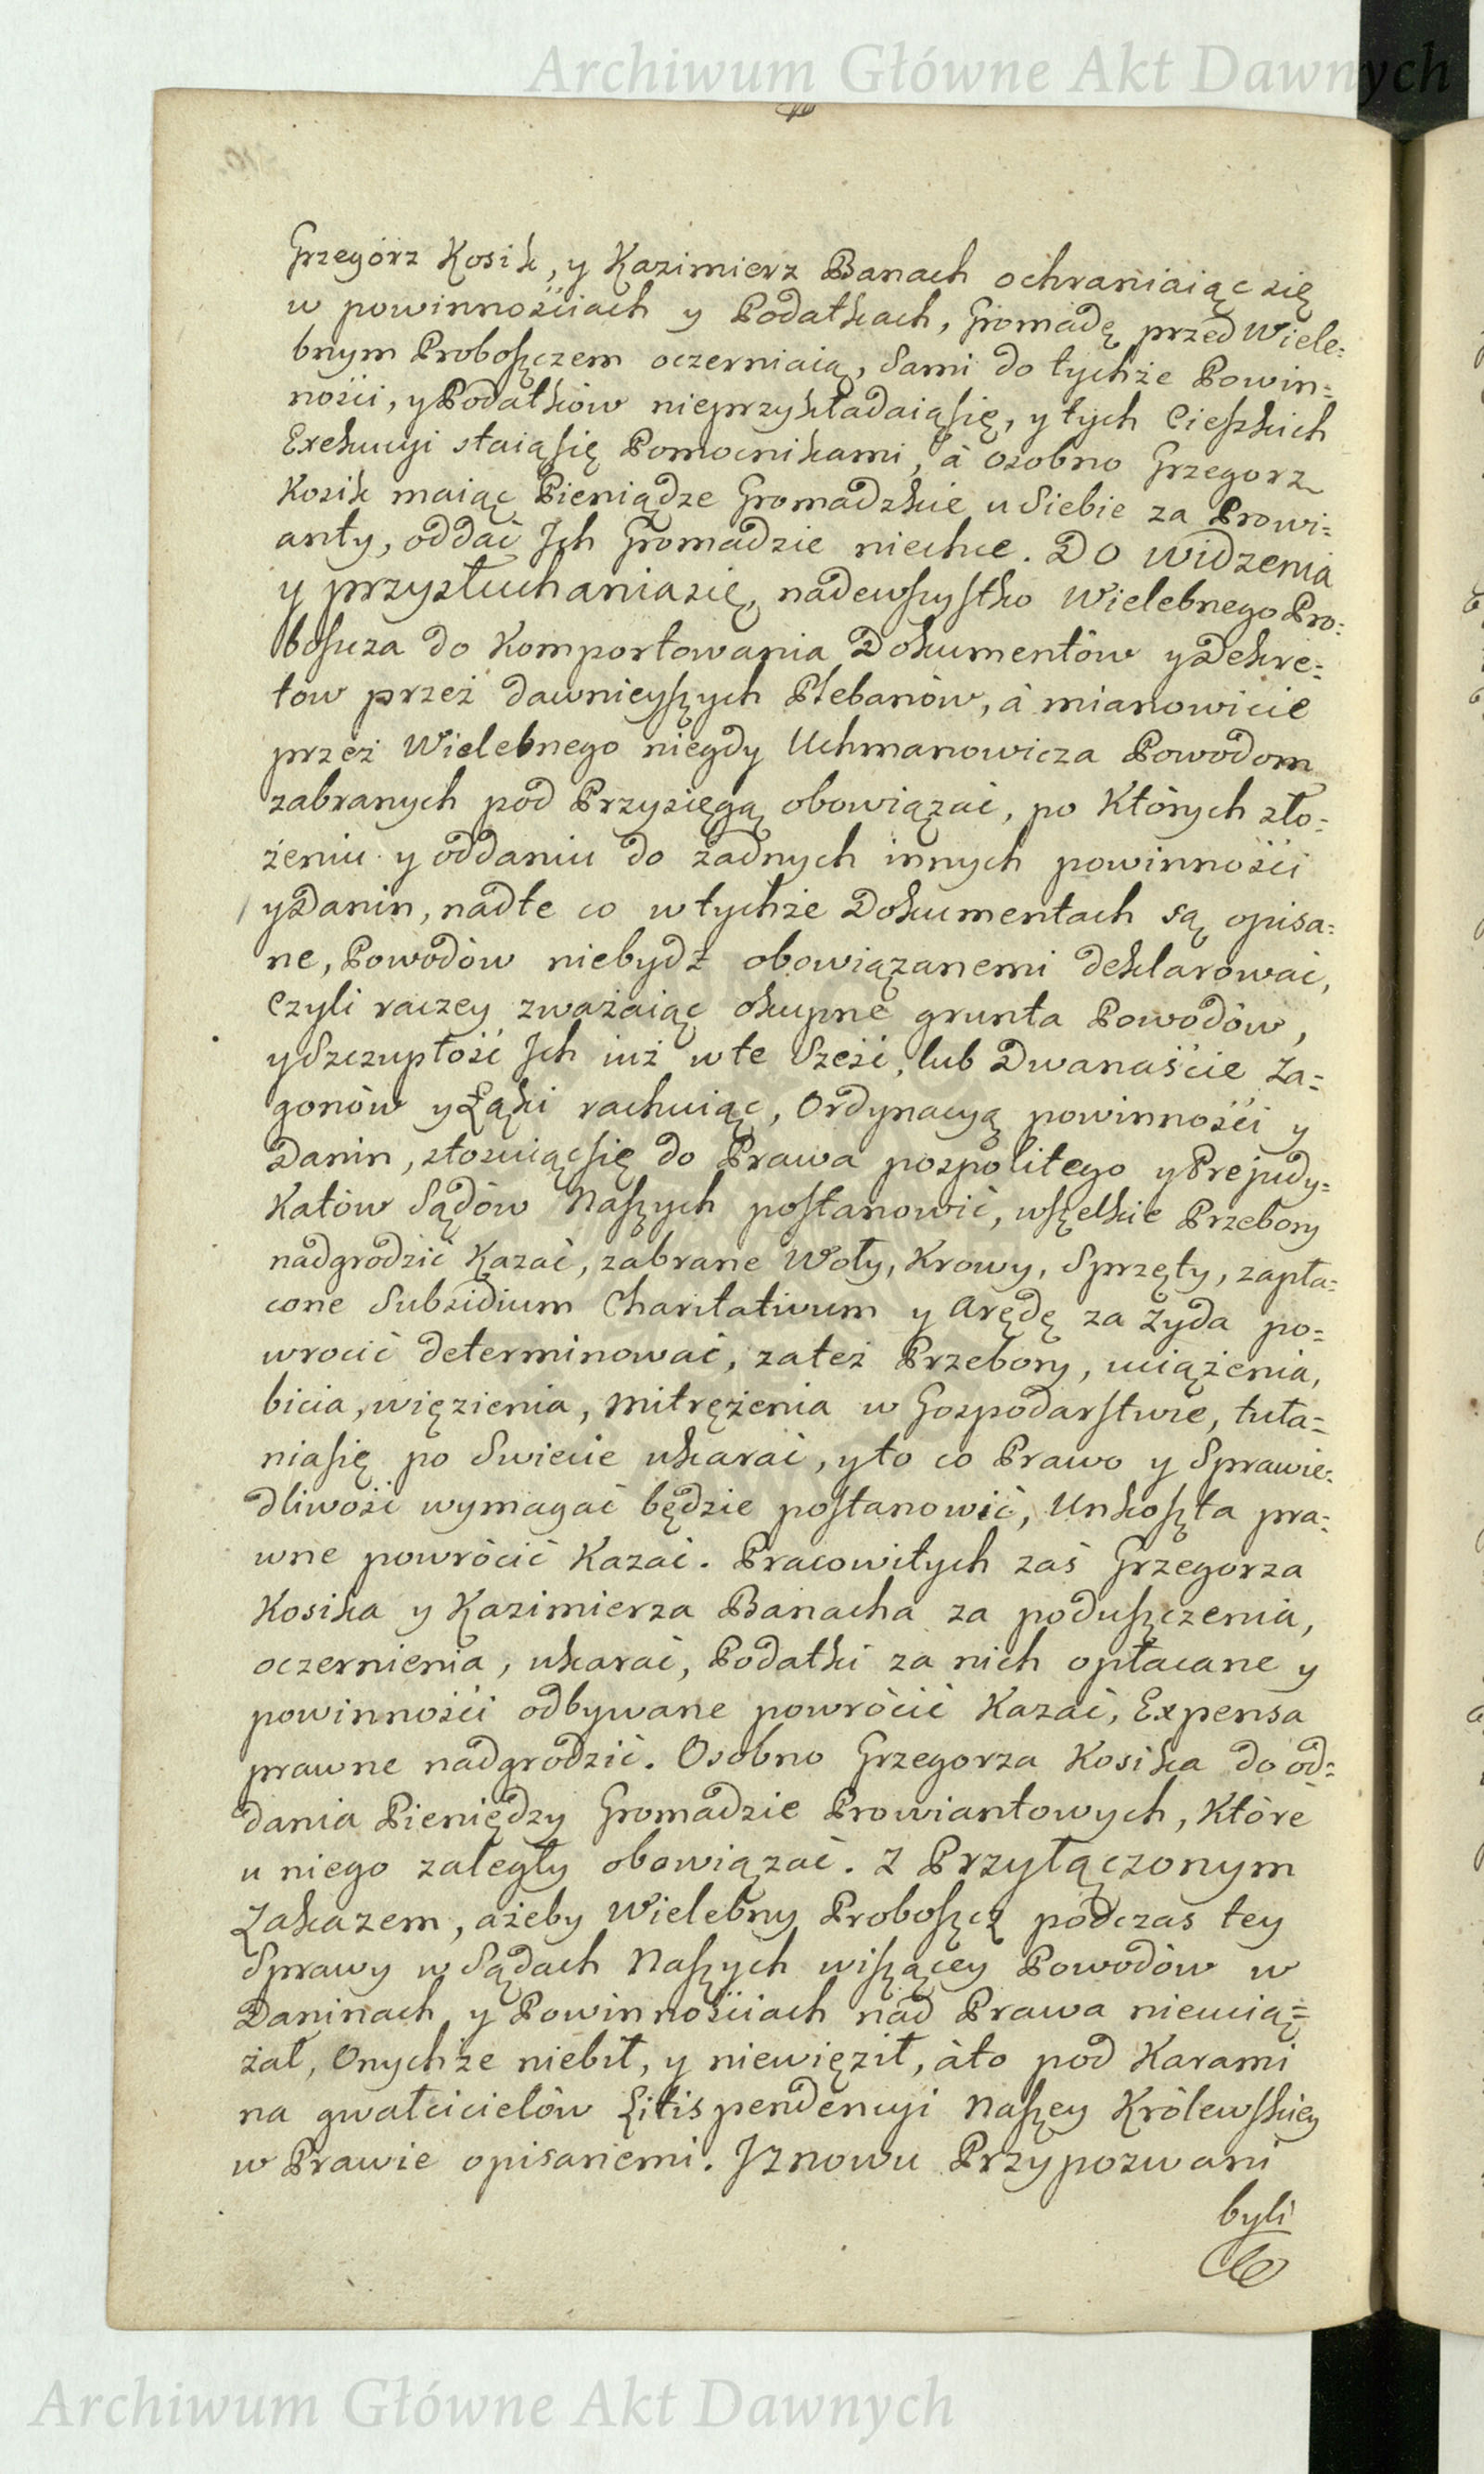 Archiwum Główne Akt Dawnych
Grzegórz Kosik, y Kazimierz Banach ochraniaiąc się
w powinnościach y Podatkach, Gromadę przed Wiele=
bnym Proboszczem oczerniaią, Sami do tychże Powin=
ności, y Podatków nieprzykładaiąsię, y tych Cieszkich
Exekucyi staiąsię Pomocnikami, à osobno Grzegorz
Kosik maiąc Pieniądze Gromadzkie u Siebie za Prowi=
anty, oddać Jch Gromadzie niechce. Do widzenia
y przysłuchaniasię, nadewszystko Wielebnego Pro=
boszcza do Komportowania Dokumentów y Dekre=
tów przez dawnieyszych Plebanów, à mianowicie
przez Wielebnego niegdy Uchmanowicza Powodom
zabranych pod Przysięgą obowiązać, po Których zło=
żeniu y oddaniu do żadnych innych powinności
y Danin, nadte co w tychże Dokumentach są opisa=
ne, Powodów niebydź obowiązanemi deklarować,
Czyli raczey zważaiąc okupne grunta Powodów,
y Szczupłość Jch iuż w te Sześć, lub Dwanaście Za=
gonów y Łąki rachuiąc, Ordynacyą powinności y
Danin, stosuiącsię do Prawa pospolitego y Prejudy=
Katów Sądów Naszych postanowić, wszelkie Przebory
nadgrodzić Kazać, zabrane Woły, Krowy, Sprzęty, zapła=
cone Subsidium Charitativum y Arędę za Żyda po=
wrocić determinować, zateż Przebory, uciążenia,
bicia, więzienia, mitrężenia w Gospodarstwie, tuła=
niasię po Swiecie ukarać, y to co Prawo y Sprawie=
dliwość wymagać będzie postanowić, Unkoszta pra=
wne powrócić Kazać. Pracowitych zaś Grzegorza
Kosika y Kazimierza Banacha za poduszczenia,
oczernienia, ukarać, Podatki za nich opłacane y
powinności odbywane powrócić Kazać, Expensa
prawne nadgrodzić. Osobno Grzegorza Kosika do od=
dania Pieniędzy Gromadzie Prowiantowych, Które
u niego zaległy obowiązać. Z Przyłączonym
Zakazem, ażeby Wielebny Proboszcz podczas tey
Sprawy w Sądach Naszych wiszącey Powodów w
Daninach y Powinnościach nad Prawa nieucią=
żał, Onychże niebił, y niewięził, àto pod Karami
na gwałcicielów Litispendencyi Naszey Królewskiey
w Prawie opisanemi. Jznowu Przypozwani
byli
Archiwum Główne Akt Dawnych